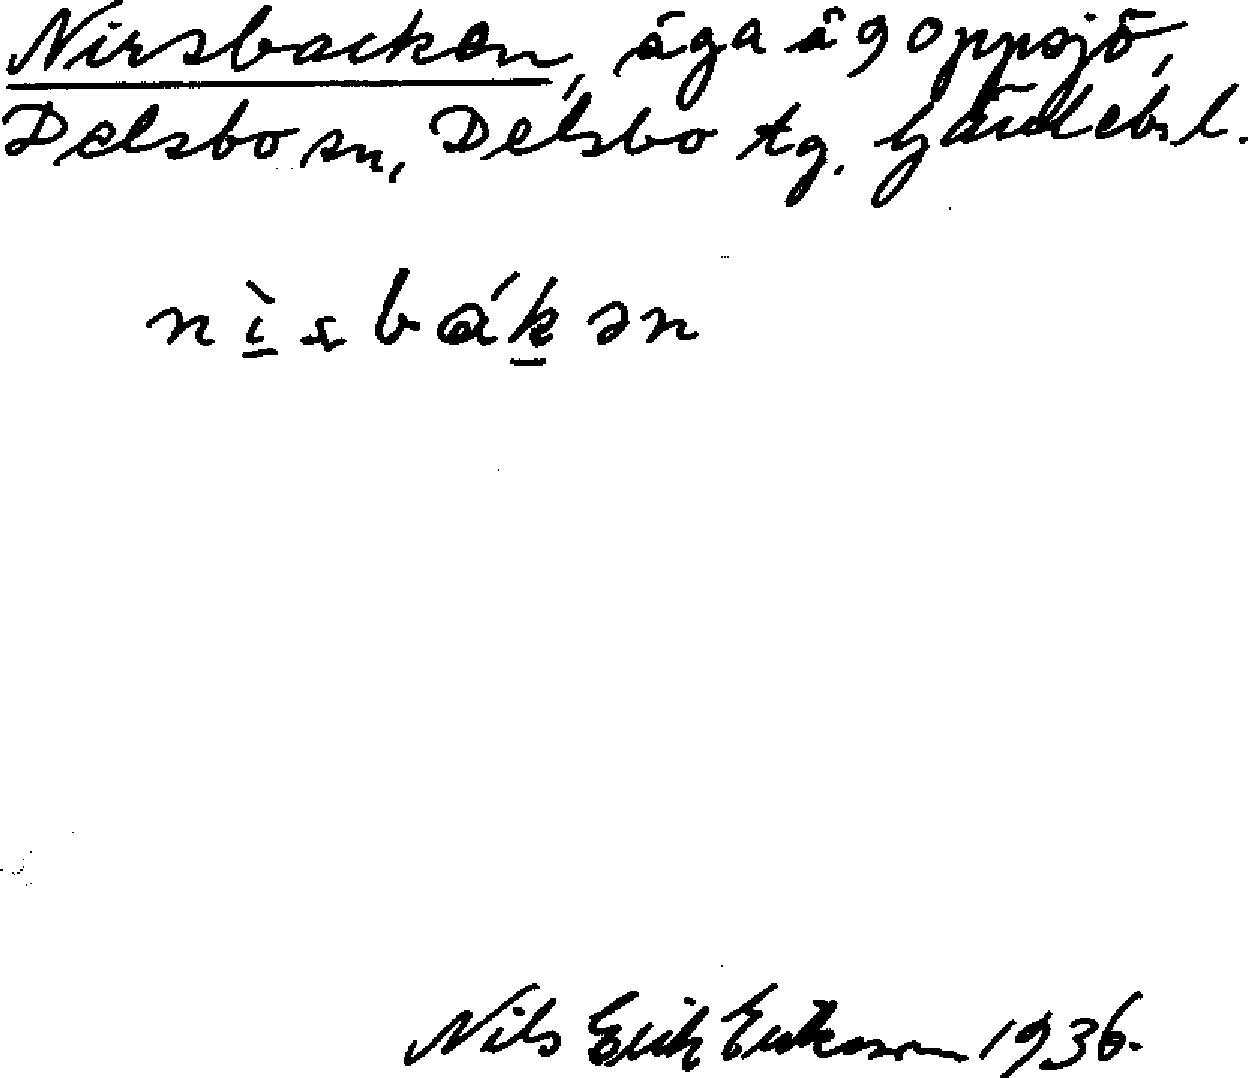 Nirsbacken, äga å 9 Oppsjö,
Delsbo sn, Delsbo tg. Gävlebs.l.
nìsbákən
Nils Erik Eriksson 1936.